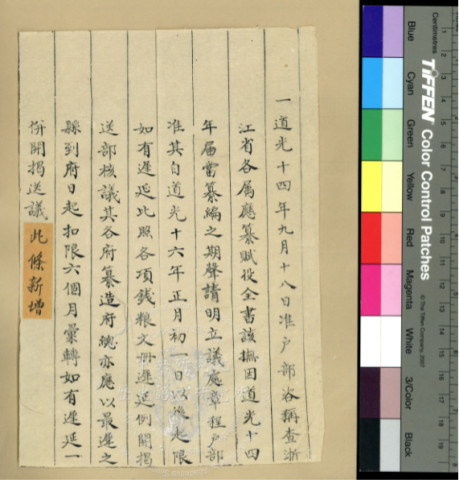 一道光十四年九月十八日准户部咨稱查浙
江省各属應纂賦役全書該撫因道光十四
年届當纂編之期聲請明立議處章程户部
准其自道光十六年正月初一日以後起限
如有遲延比照各項錢粮文册遲延例開揭
送部核議其各府纂造府總亦應以最遲之
縣到府日起扣限六個月彙轉如有遲延一
併開揭送議 此條新增
Centimetres
TIFFEN Color Control Patches
© The Tiffen Company, 2007
Blue
Cyan
Green
Yellow
Red
Magenta
White
3/Color
Black